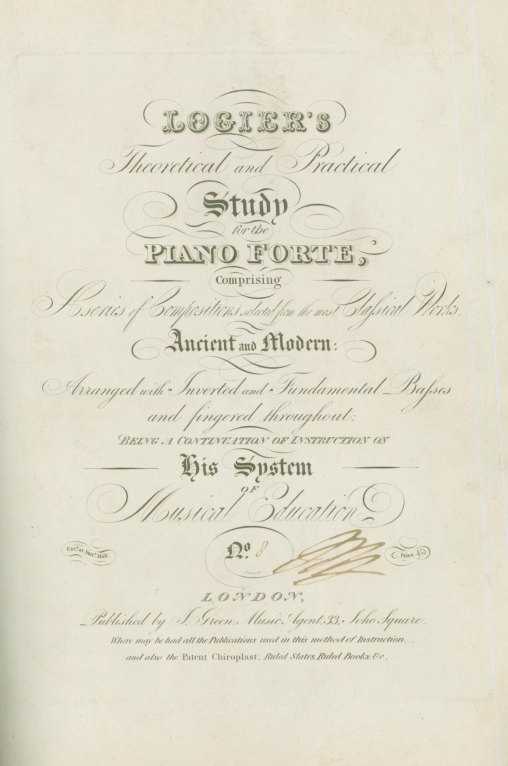 LOGIER'S
Theoretical and Practical
Study
for the
PIANO FORTE,
Comprising
A series of Compositions, selected from the most Classical Works,
Ancient and Modern:
Arranged with Inverted and Fundamental Basses
and fingered throughout:
BEING A CONTINUATION OF INSTRUCTION ON
His System
OF
Musical Education
Ent.d at Stat.s Hall.
No. 8
Price
LONDON,
Published by J. Green, Music Agent, 33, Soho Square.
Where may be had all the Publications used in this method of Instruction,
and also the Patent Chiroplast, Ruled Slates, Ruled Books, &c.